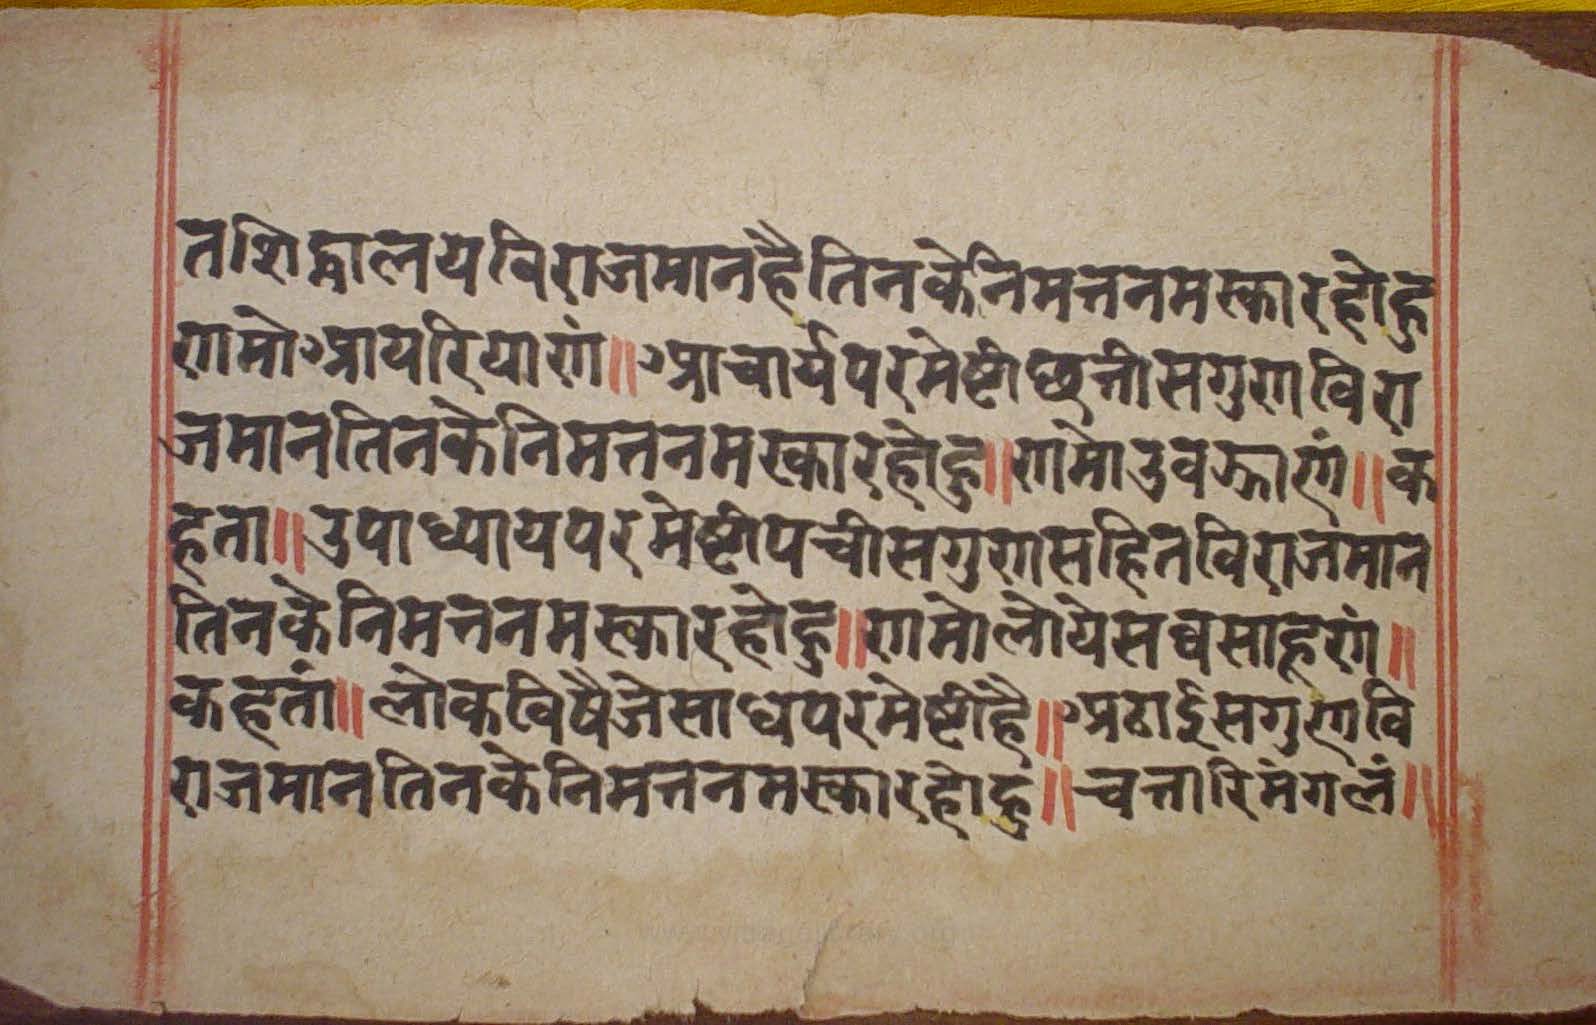 तशिद्धालयविराजमानहैतिनकेनिमत्तनमस्कारहोहु
णमोआयरियाणं॥आचार्यपरमेष्टीछत्तीसगुणविरा
जमानतिनकेनिमत्तनमस्कारहोहु॥णमोउवझाणं॥क
हता॥उपाध्यायपरमेष्टीपचीसगुणसहितविराजमान
तिनकेनिमत्तनमस्कारहोहु॥णमोलोयेसव्वसाहूणं॥
कहतां॥लोकविषैजेसाधपरमेष्टीहै॥अठाईसगुणवि
राजमानतिनकेनिमत्तनमस्कारहोहु॥चत्तारिमंगलं॥